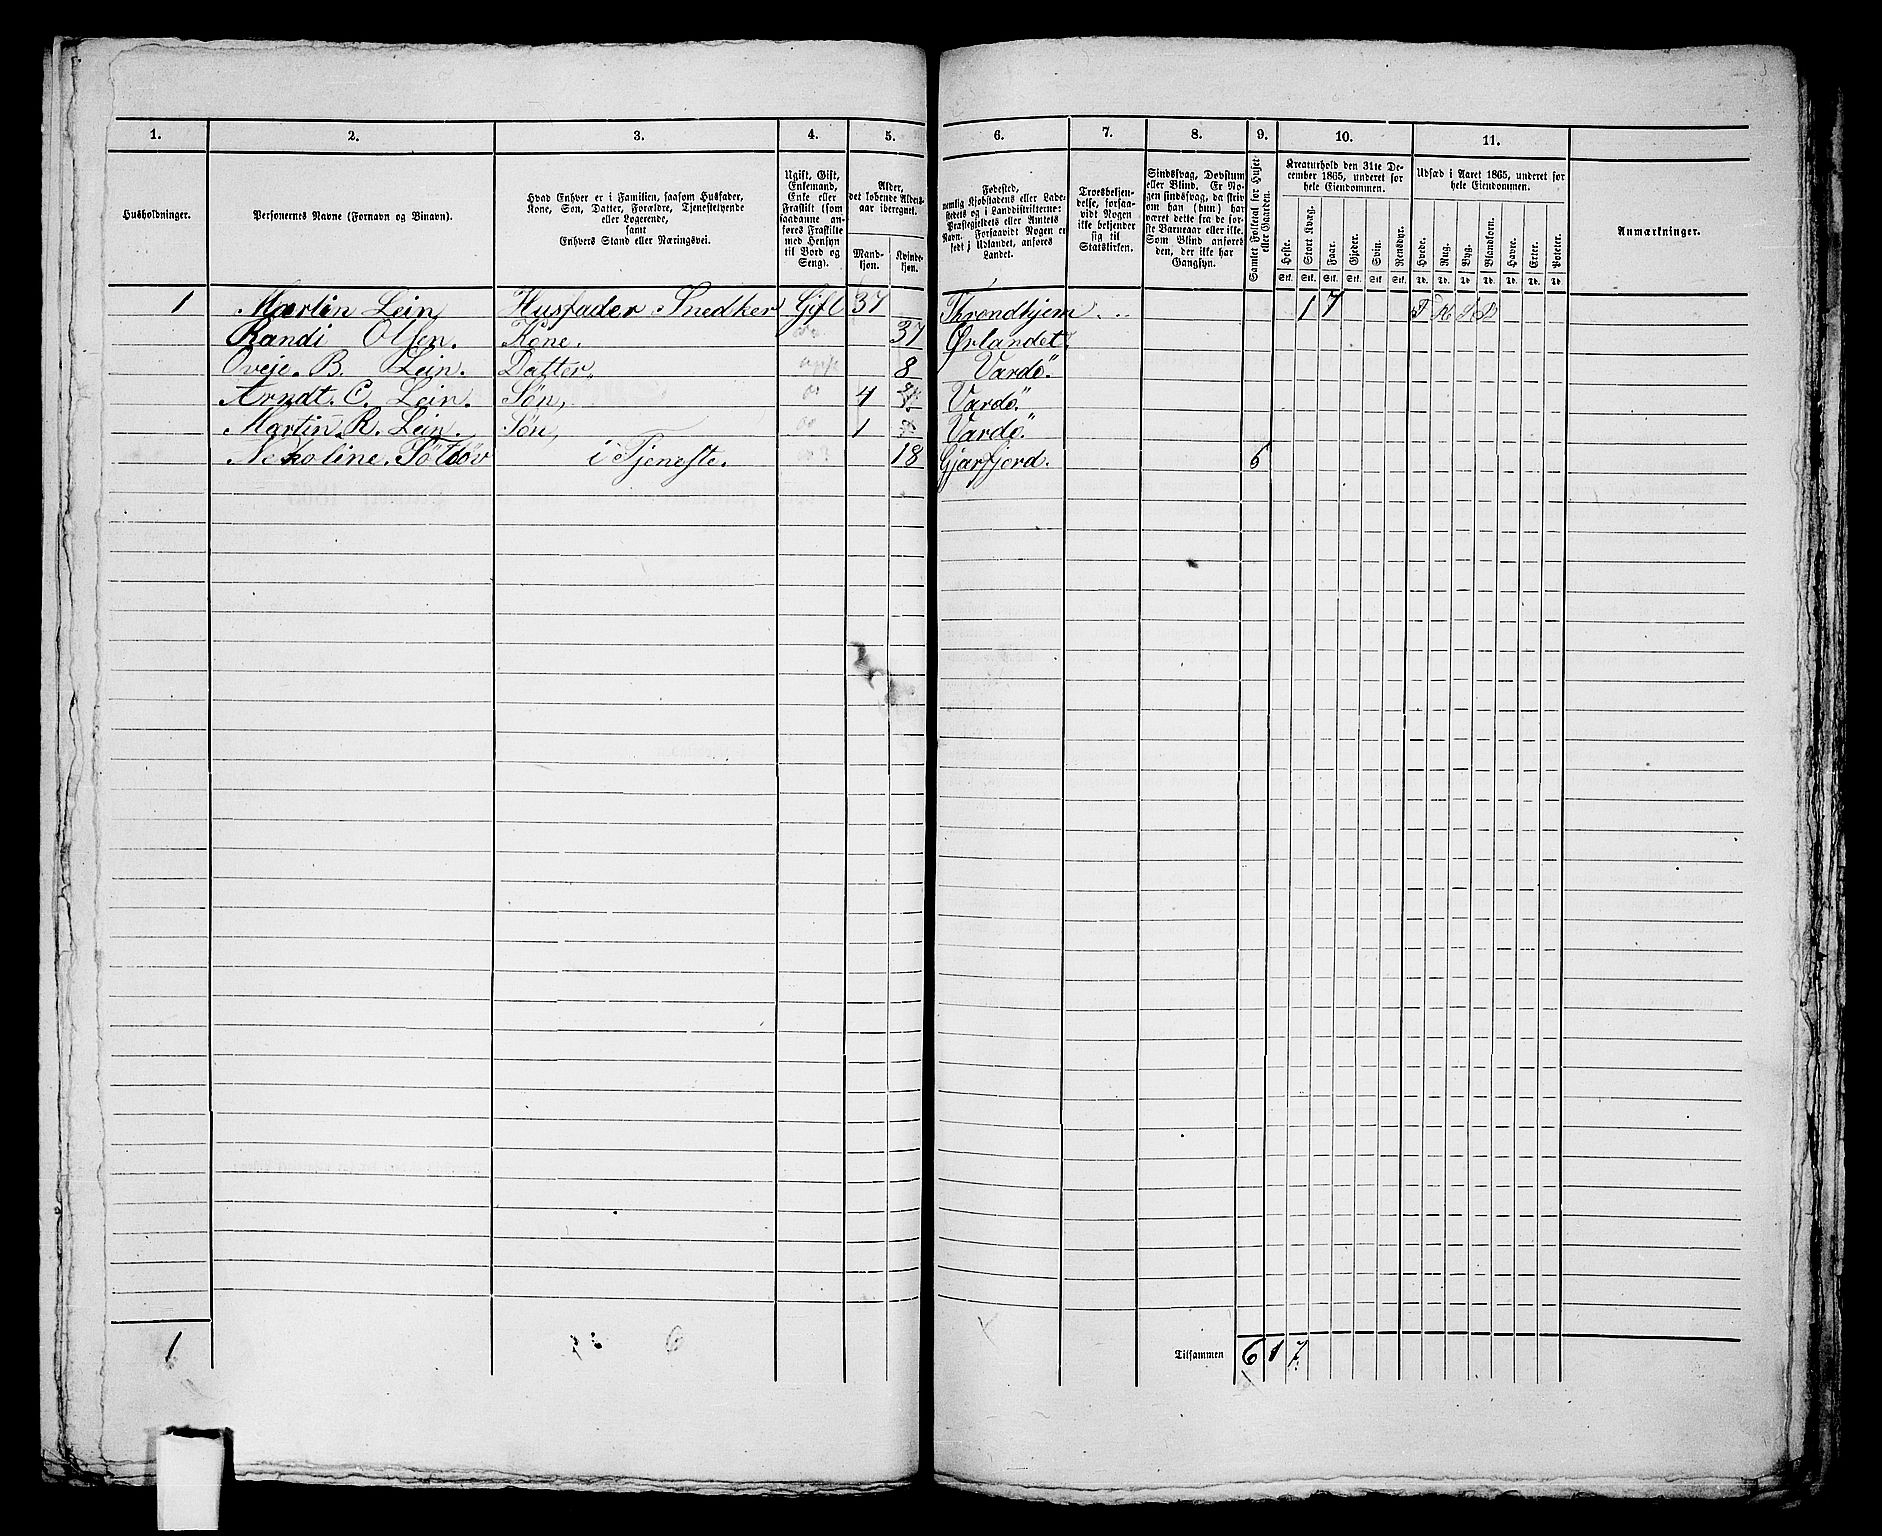 1. 2. 3. 4. 5. 6. 7. 8. 9. 10. 11.
Husholdninger.
Personernes Navne (Fornavn og Binavn).
Hvad Enhver er i Familien, saasom Husfader,
Kone, Søn, Datter, Forældre, Tjenestetyende
eller Logerende,
samt
Enhvers Stand eller Næringsvei.
Ugift, Gift,
Enkemand,
Enke eller
Fraskilt (som
saadanne an-
føres Fraskilte
med Hensyn
til Bord og
Seng).
Alder,
det løbende Alders-
aar iberegnet.
Mand-
kjøn.
Kvinde-
kjøn.
Fødested,
nemlig Kjøbstadens eller Lade-
stedets og i Landdistrikterne:
Præstegjeldets eller Amtets
Navn. Forsaavidt Nogen er
født i Udlandet, anføres
Landet.
Troesbekjen-
delse, forsaa-
vidt Nogen
ikke bekjender
sig til
Statskirken.
Sindssvag, Døvstum
eller Blind. Er No-
gen sindssvag, da skriv
om han (hun) har
været dette fra de før-
ste Barneaar eller ikke.
Som Blind anføres
den, der ikke har
Gangsyn.
Samlet Folketal for Huset
eller Gaarden.
Kreaturhold den 31te De-
cember 1865, underet for
hele Eiendommen.
Heste. Stort Kvæg. Faar. Gjeder. Svin. Rensdyr.
Stk. Stk. Stk. Stk. Stk. Stk.
Udsæd i Aaret 1865, underet for
hele Eiendommen.
Hvede. Rug. Byg. Blandkorn. Havre. Erter. Poteter.
Td. Td. Td. Td. Td. Td. Td.
Anmærkninger.
1 Martin Lein, Husfader Snedker Gift 37 Throndhjem 1 7
Randi Olsen. Kone. 37 Ørlandet
B. Lein. Datter. 8 Vardö.
Arndt. C. Lein. Søn, 4 Vardö.
Martin R. Lein. Søn, 1 Vardö.
i Tjeneste. 18 6
1 6
Tilsammen 6 1 7